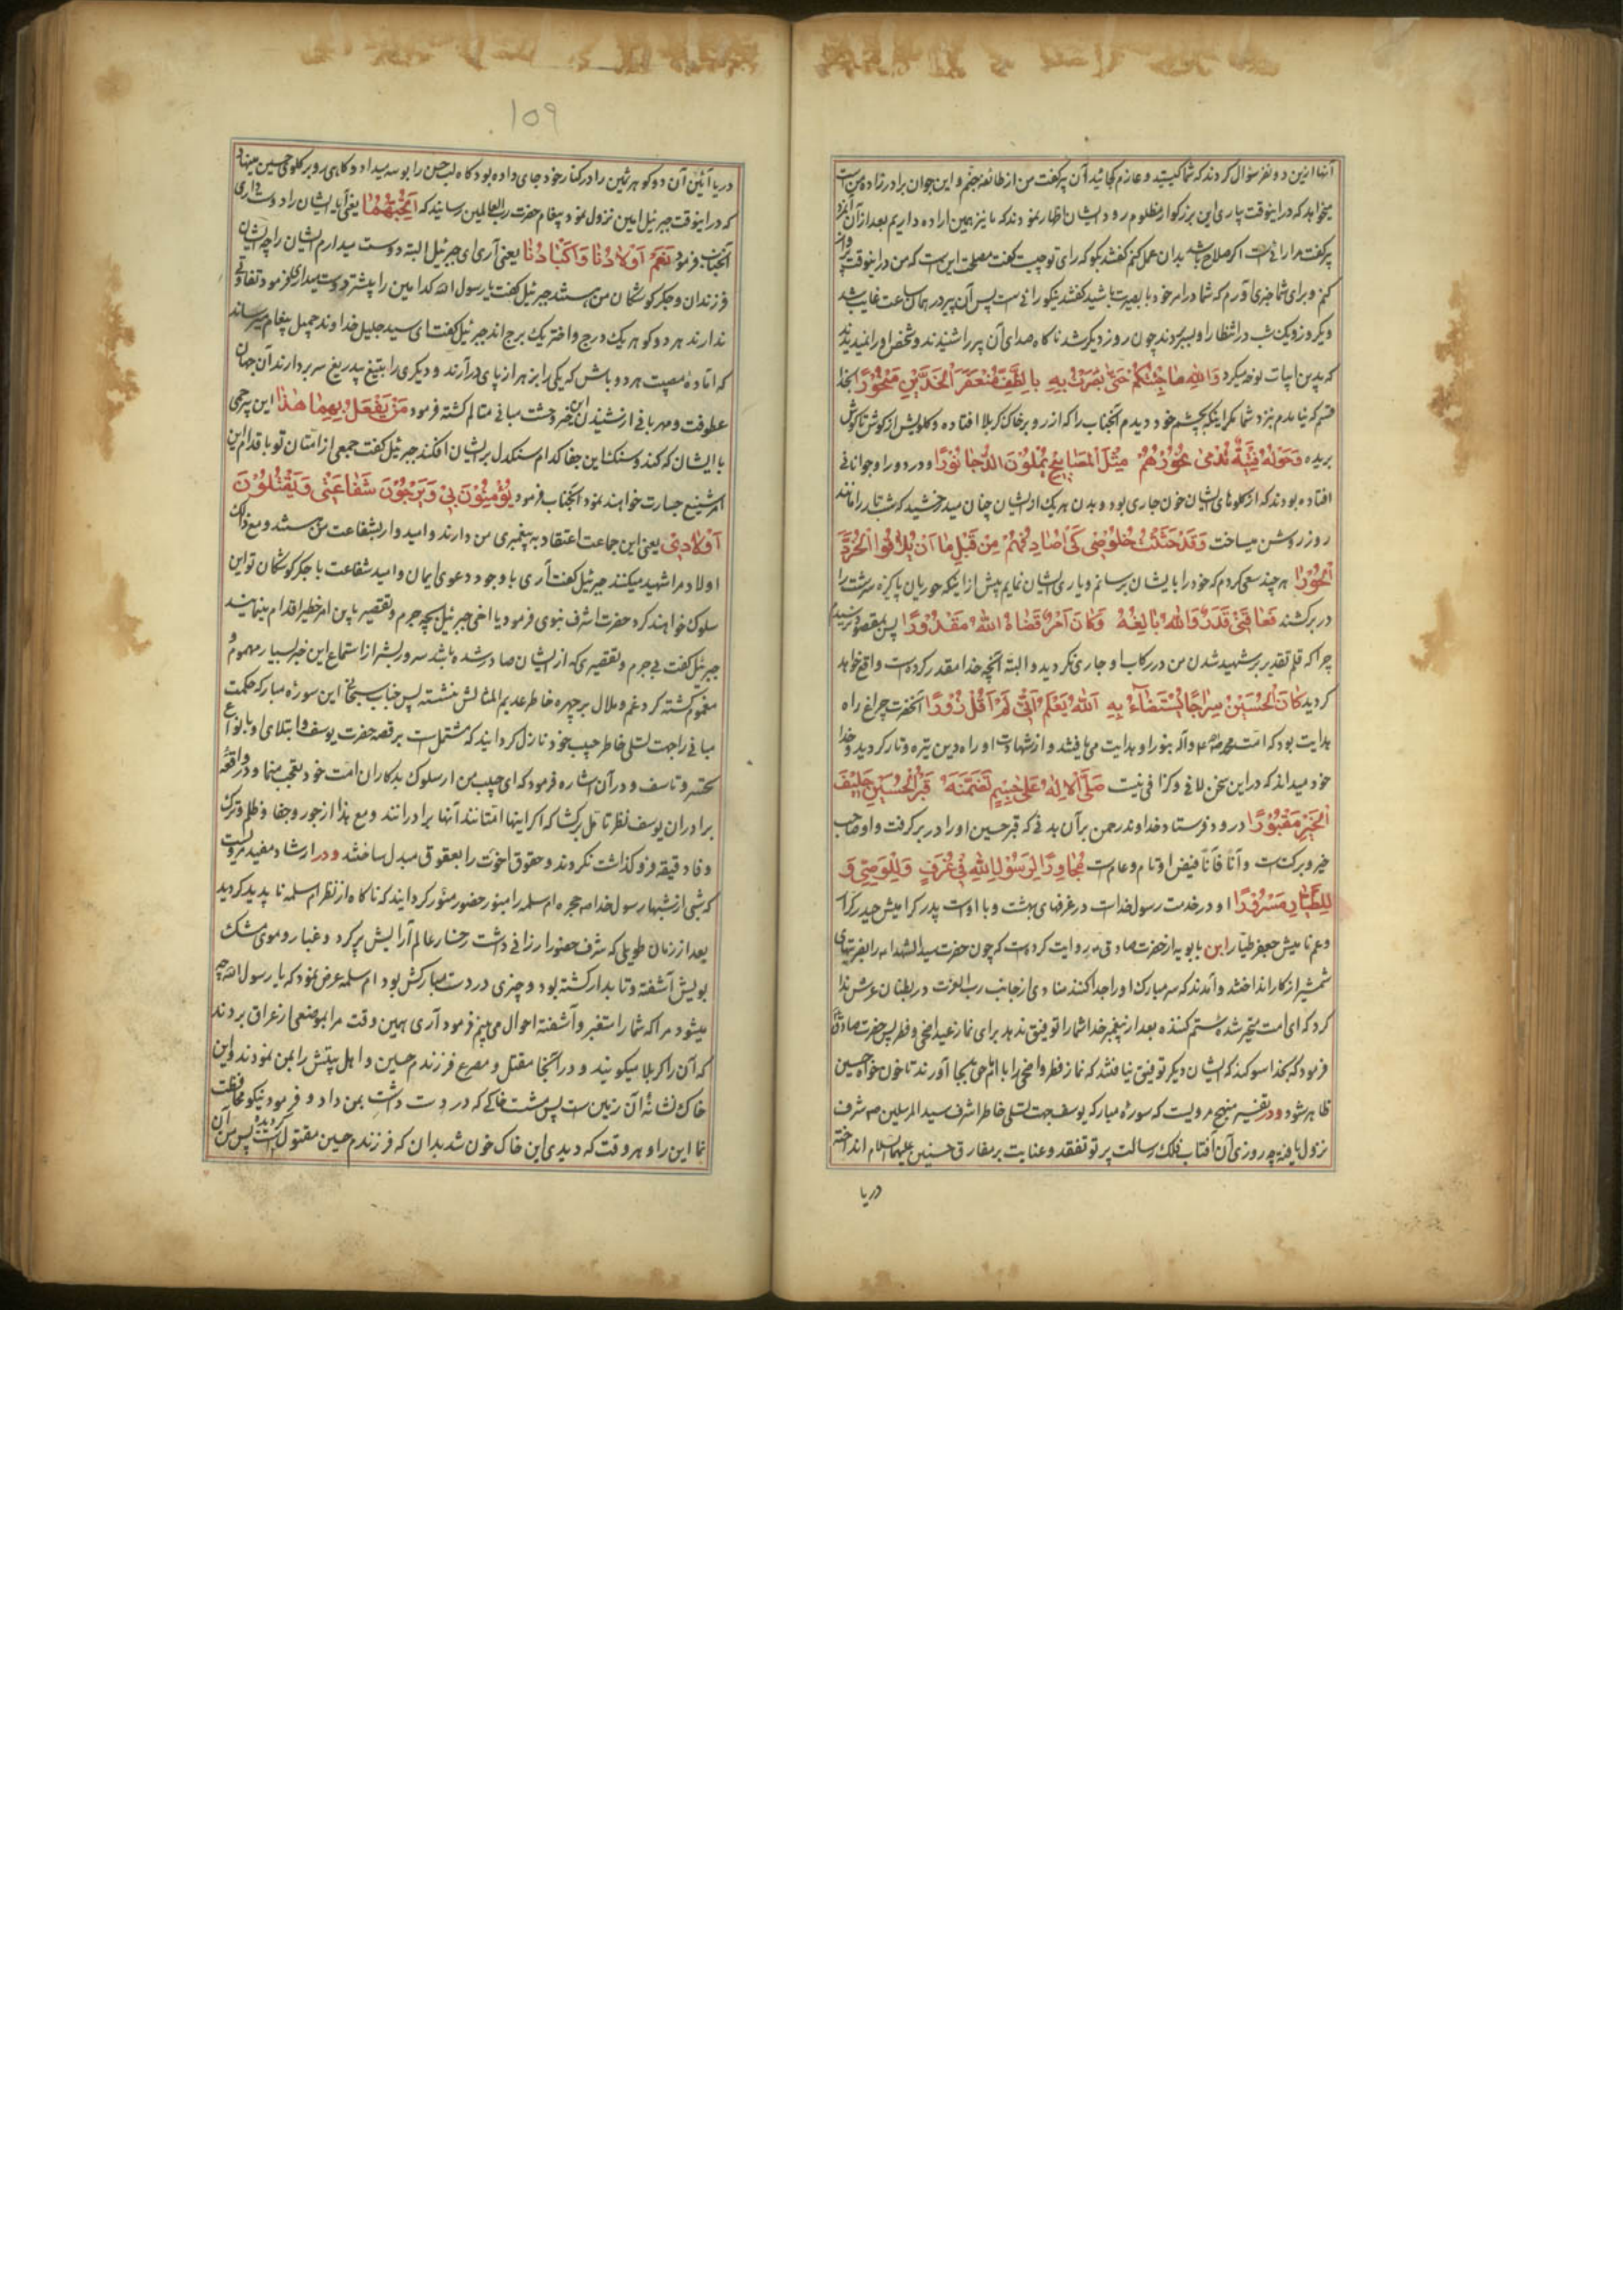 آنها ازین دو نفر سؤال کردند که شما کیستید و عازم کجائید آن پیر کفت من از طائفه جنم و این جوان برادرزاده من است
میخواهد که در اینوقت یاری این بزرکوار مظلوم رود ایشان اظهار نمودند که ما نیز همین اراده داریم بعد از آن
پیر کفت مرا رائی است اکر صلاح باشد بدان عمل کنم کفتند بکو که رای تو چیست کفت مصلحت این است که من در اینوقت
کنم و برای شما خبری آورم که شما در امر خود با بصیرت باشید کفتند نیکو رائی است پس آن پیر در همان ساعت غایب شد
و یکروز و یک شب در انتظار او بسر بردند چون روز دیکر شد ناکاه صدای آن پیر را شنیدند و شخص او را نمیدیدند
که بدین ابیات نوحه میکرد وَاللهِ مَا جِئْتُکُمْ حَتّٰی بَصُرْتُ بِهِ بِالطَّفِّ مُنْعَفِرَ الْخَدَّیْنِ مَنْحُوْرًا بخدا
قسم که نیامدم نزد شما مکر اینکه بچشم خود دیدم آنجناب را که از رو بر خاک کربلا افتاده و کلویش از کوش تا کوش
بریده وَحَوْلَهُ فِتْیَةٌ تُدْمٰی نُحُوْرُهُمْ مِثْلَ الْمَصَابِیْحِ یُمْلُوْنَ الدُّجَا نُوْرًا و در دور او جوانانی
افتاده بودند که از کلوهای ایشان خون جاری بود و بدن هر یک از ایشان چنان میدرخشید که شب تار را مانند
روز روشن میساخت وَقَدْ حَثَثْتُ قُلُوْصِی کَیْ اُصَادِفَهُمْ مِنْ قَبْلِ مَا اَنْ یُلَاقُوا الْخُرَّدَ
الْحُوْرَا هر چند سعی کردم که خود را بایشان برسانم و یاری ایشان نمایم پیش از اینکه حوریان پاکیزه سرشت را
در بر کشند فَعَاقَنِی قَدَرٌ وَاللهُ بَالِغُهُ وَکَانَ اَمْرٌ قَضَاهُ اللهُ مَقْدُوْرًا پس بمقصود نرسیدم
چرا که قلم تقدیر بر شهید شدن من در رکاب او جاری نکردید و البته آنچه خدا مقدر کرده است واقع خواهد
کردید کَانَ الْحُسَیْنُ سِرَاجًا یُسْتَضَاءُ بِهِ اَللهُ یَعْلَمُ اَنِّی لَمْ اَقُلْ زُوْرًا آنحضرت چراغ راه
هدایت بود که امت محمد صلی الله علیه وآله بنور او هدایت می‌یافتند و از شهادت او راه دین تیره و تار کردید و خدا
خود میداند که در این سخن لاف و کزافی نیست صَلَّی الْاِلٰهُ عَلٰی جِسْمٍ تَضَمَّنَهُ قَبْرُ الْحُسَیْنِ حَلِیْفَ
الْخَیْرِ مَقْبُوْرًا درود فرستاد خداوند رحمن بر آن بدنی که قبر حسین او را در بر کرفت و او صاحب
خیر و برکت است و آناً فآناً فیض او تام و عام است مُجَاوِرًا لِرَسُوْلِ اللهِ فِی غُرَفٍ وَلِلْوَصِیِّ وَ
لِلطَّیَّارِ مَسْرُوْرًا او در خدمت رسول خداست در غرفهای بهشت و با اوست پدر کرامیش حیدر کرار
و عم نامیش جعفر طیار ابن بابویه از حضرت صادق ع روایت کرده است که چون حضرت سید الشهدا را بضربتهای
شمشیر از کار انداختند و آمدند که سر مبارک او را جدا کنند منادی از جانب رب العزت در بطنان عرش ندا
کرد که ای امت متحیر شده ستم کننده بعد از پیغمبر خدا شما را توفیق ندهد برای نماز عید اضحی و فطر پس حضرت صادق
فرمود که بخدا سوکند که ایشان دیکر توفیق نیافتند که نماز فطر و اضحی را با امام حی بجا آورند تا خون خواه حسین
ظاهر شود و در تفسیر منهج مرویست که سوره مبارکه یوسف جهت تسلی خاطر اشرف سید المرسلین ص شرف
نزول یافته چه روزی آن آفتاب فلک رسالت پرتو تفقد و عنایت بر مفارق حسنین علیهما السلام انداخته
دریا
۱۵۹
دریا آئین آن دو کوهر ثمین را در کنار خود جای داده بود کاه لب حسن را بوسه میداد و کاهی رو بر کلوی حسین مینهاد
که در اینوقت جبرئیل امین نزول نمود پیغام حضرت رب العالمین رسانید که اَتُحِبُّهُمَا یعنی آیا ایشان را دوست داری
آنجناب فرمود نَعَمْ اَوْلَادُنَا وَاَکْبَادُنَا یعنی آری ای جبرئیل البته دوست میدارم ایشان را چه ایشان
فرزندان و جکرکوشکان من هستند جبرئیل کفت یا رسول الله کدامین را بیشتر دوست میداری فرمود تفاوتی
ندارند هر دو کوهر یک درج و اختر یک برج اند جبرئیل کفت ای سید جلیل خداوند جمیل پیغام میرساند
که آماده مصیبت هر دو باش که یکی را بزهر از پای درآرند و دیکری را بتیغ بیدریغ سر بردارند آن جهان
عطوفت و مهربانی از شنیدن این خبر وحشت مبانی متالم کشته فرمود مَنْ یَفْعَلُ بِهِمَا هٰذَا این بیرحمی
با ایشان که کند و سنک این جفا کدام سنکدل بر ایشان افکند جبرئیل کفت جمعی از امتان تو باقدام این
امر شنیع جسارت خواهند نمود آنجناب فرمود یُؤْمِنُوْنَ بِیْ وَیَرْجُوْنَ شَفَاعَتِیْ وَیَقْتُلُوْنَ
اَوْلَادِیْ یعنی این جماعت اعتقاد به پیغمبری من دارند و امیدوار بشفاعت من هستند و مع ذلک
اولاد مرا شهید میکنند جبرئیل کفت آری با وجود دعوی ایمان و امید شفاعت با جکرکوشکان تو این
سلوک خواهند کرد حضرت اشرف نبوی فرمود یا اخی جبرئیل بچه جرم و تقصیر باین امر خطیر اقدام مینمایند
جبرئیل کفت بی جرم و تقصیری که از ایشان صادر شده باشد سرور بشر از استماع این خبر بسیار مهموم و
مغموم کشته کرد غم و ملال بر چهره خاطر عدیم المثالش نشسته پس جناب سبحانی این سوره مبارکه حکمت
مبانی را جهت تسلی خاطر حبیب خود نازل کردانید که مشتمل است بر قصه حضرت یوسف و ابتلای او بانواع
تحسر و تاسف و در آن اشاره فرمود که ای حبیب من از سلوک بدکاران امت خود تعجب منما و در واقعه
برادران یوسف نظر تامل برکشا که اکر اینها امتانند آنها برادرانند و مع هذا از جور و جفا و ظلم و ترک
وفا دقیقه فروکذاشت نکردند و حقوق اخوت را بعقوق مبدل ساختند و در ارشاد مفید مرویست
که شبی از شبها رسول خدا ص حجره ام سلمه را بنور حضور منور کردانید که ناکاه از نظر ام سلمه ناپدید کردید
بعد از زمان طویلی که شرف حضور ارزانی داشت رخسار عالم آرایش پر کرد و غبار و موی مشک
بویش آشفته و تابدار کشته بود و چیزی در دست مبارکش بود ام سلمه عرض نمود که یا رسول الله چه
میشود مرا که شما را متغیر و آشفته احوال می‌بینم فرمود آری همین وقت مرا بموضعی از عراق بردند
که آن را کربلا میکویند و در آنجا مقتل و مصرع فرزندم حسین و اهل بیتش را بمن نمودند و این
خاک نشانهٔ آن زمین است پس مشت خاکی که در دست داشت بمن داد و فرمود نیکو محافظت
نما این را و هر وقت که دیدی این خاک خون شد بدان که فرزندم حسین مقتول کردیده است پس من آن